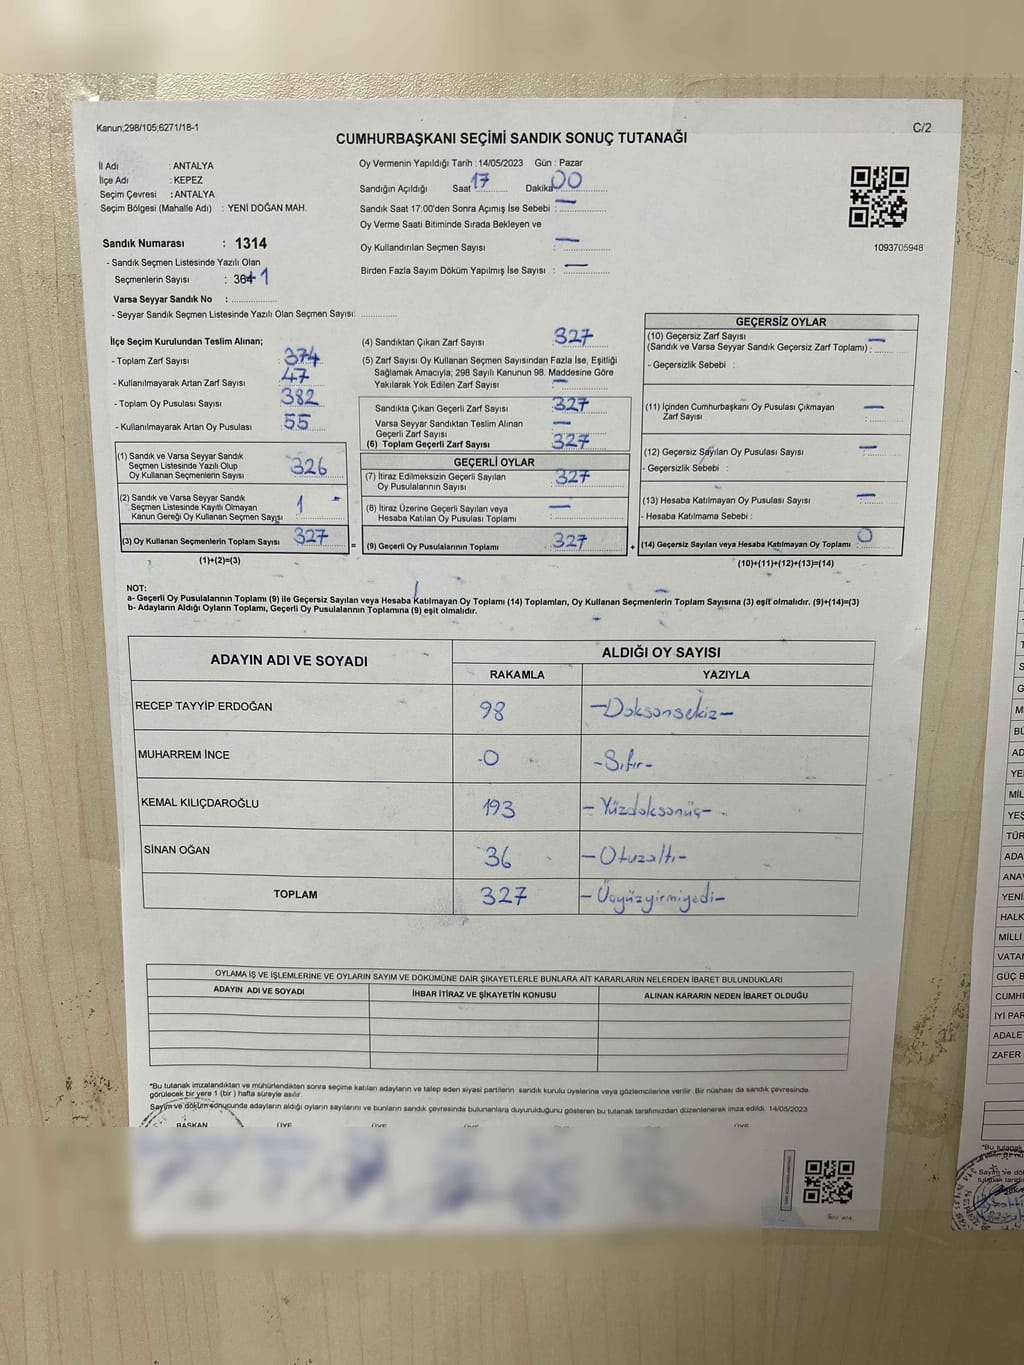 Kanun;298/105;6271/18-1
C/2
CUMHURBAŞKANI SEÇİMİ SANDIK SONUÇ TUTANAĞI
İl Adı : ANTALYA
İlçe Adı : KEPEZ
Seçim Çevresi : ANTALYA
Seçim Bölgesi (Mahalle Adı) : YENİ DOĞAN MAH.
Oy Vermenin Yapıldığı Tarih : 14/05/2023 Gün : Pazar
Sandığın Açıldığı Saat 17 Dakika 00
Sandık Saat 17:00'den Sonra Açımış İse Sebebi : —
Oy Verme Saati Bitiminde Sırada Bekleyen ve
Oy Kullandırılan Seçmen Sayısı : —
Birden Fazla Sayım Döküm Yapılmış İse Sayısı : —
1093705948
Sandık Numarası : 1314
- Sandık Seçmen Listesinde Yazılı Olan
Seçmenlerin Sayısı : 364 1
Varsa Seyyar Sandık No :
- Seyyar Sandık Seçmen Listesinde Yazılı Olan Seçmen Sayısı:
İlçe Seçim Kurulundan Teslim Alınan;
- Toplam Zarf Sayısı 374
- Kullanılmayarak Artan Zarf Sayısı 47
- Toplam Oy Pusulası Sayısı 382
- Kullanılmayarak Artan Oy Pusulası 55
(1) Sandık ve Varsa Seyyar Sandık
Seçmen Listesinde Yazılı Olup
Oy Kullanan Seçmenlerin Sayısı 326
(2) Sandık ve Varsa Seyyar Sandık
Seçmen Listesinde Kayıtlı Olmayan
Kanun Gereği Oy Kullanan Seçmen Sayısı 1
(3) Oy Kullanan Seçmenlerin Toplam Sayısı 327
(1)+(2)=(3)
(4) Sandıktan Çıkan Zarf Sayısı 327
(5) Zarf Sayısı Oy Kullanan Seçmen Sayısından Fazla İse, Eşitliği
Sağlamak Amacıyla; 298 Sayılı Kanunun 98. Maddesine Göre
Yakılarak Yok Edilen Zarf Sayısı —
Sandıkta Çıkan Geçerli Zarf Sayısı 327
Varsa Seyyar Sandıktan Teslim Alınan
Geçerli Zarf Sayısı —
(6) Toplam Geçerli Zarf Sayısı 327
GEÇERLİ OYLAR
(7) İtiraz Edilmeksizin Geçerli Sayılan
Oy Pusulalarının Sayısı 327
(8) İtiraz Üzerine Geçerli Sayılan veya
Hesaba Katılan Oy Pusulası Toplamı —
= (9) Geçerli Oy Pusulalarının Toplamı 327
GEÇERSİZ OYLAR
(10) Geçersiz Zarf Sayısı
(Sandık ve Varsa Seyyar Sandık Geçersiz Zarf Toplamı) : —
- Geçersizlik Sebebi :
(11) İçinden Cumhurbaşkanı Oy Pusulası Çıkmayan
Zarf Sayısı —
(12) Geçersiz Sayılan Oy Pusulası Sayısı —
- Geçersizlik Sebebi :
(13) Hesaba Katılmayan Oy Pusulası Sayısı —
- Hesaba Katılmama Sebebi :
+ (14) Geçersiz Sayılan veya Hesaba Katılmayan Oy Toplamı : 0
(10)+(11)+(12)+(13)=(14)
NOT:
a- Geçerli Oy Pusulalarının Toplamı (9) ile Geçersiz Sayılan veya Hesaba Katılmayan Oy Toplamı (14) Toplamları, Oy Kullanan Seçmenlerin Toplam Sayısına (3) eşit olmalıdır. (9)+(14)=(3)
b- Adayların Aldığı Oyların Toplamı, Geçerli Oy Pusulalarının Toplamına (9) eşit olmalıdır.
ADAYIN ADI VE SOYADI
ALDIĞI OY SAYISI
RAKAMLA YAZIYLA
RECEP TAYYİP ERDOĞAN 98 -Doksonsekiz-
MUHARREM İNCE 0 -Sıfır-
KEMAL KILIÇDAROĞLU 193 -Yüzdoksonüç-
SİNAN OĞAN 36 -Otuzaltı-
TOPLAM 327 -Üçyüzyirmiyedi-
OYLAMA İŞ VE İŞLEMLERİNE VE OYLARIN SAYIM VE DÖKÜMÜNE DAİR ŞİKAYETLERLE BUNLARA AİT KARARLARIN NELERDEN İBARET BULUNDUKLARI
ADAYIN ADI VE SOYADI
İHBAR İTİRAZ VE ŞİKAYETİN KONUSU
ALINAN KARARIN NEDEN İBARET OLDUĞU
*Bu tutanak imzalandıktan ve mühürlendikten sonra seçime katılan adayların ve talep eden siyasi partilerin sandık kurulu üyelerine veya gözlemcilerine verilir. Bir nüshası da sandık çevresinde
görülecek bir yere 1 (bir) hafta süreyle asılır.
Sayım ve döküm sonucunda adayların aldığı oyların sayılarını ve bunların sandık çevresinde bulunanlara duyurulduğunu gösteren bu tutanak tarafımızdan düzenlenerek imza edildi. 14/05/2023
BAŞKAN ÜYE ÜYE ÜYE ÜYE
ADA
ANA
YENİ
HALK
MİLLİ
VATAN
GÜÇ B
CUMH
İYİ PAR
ADALE
ZAFER